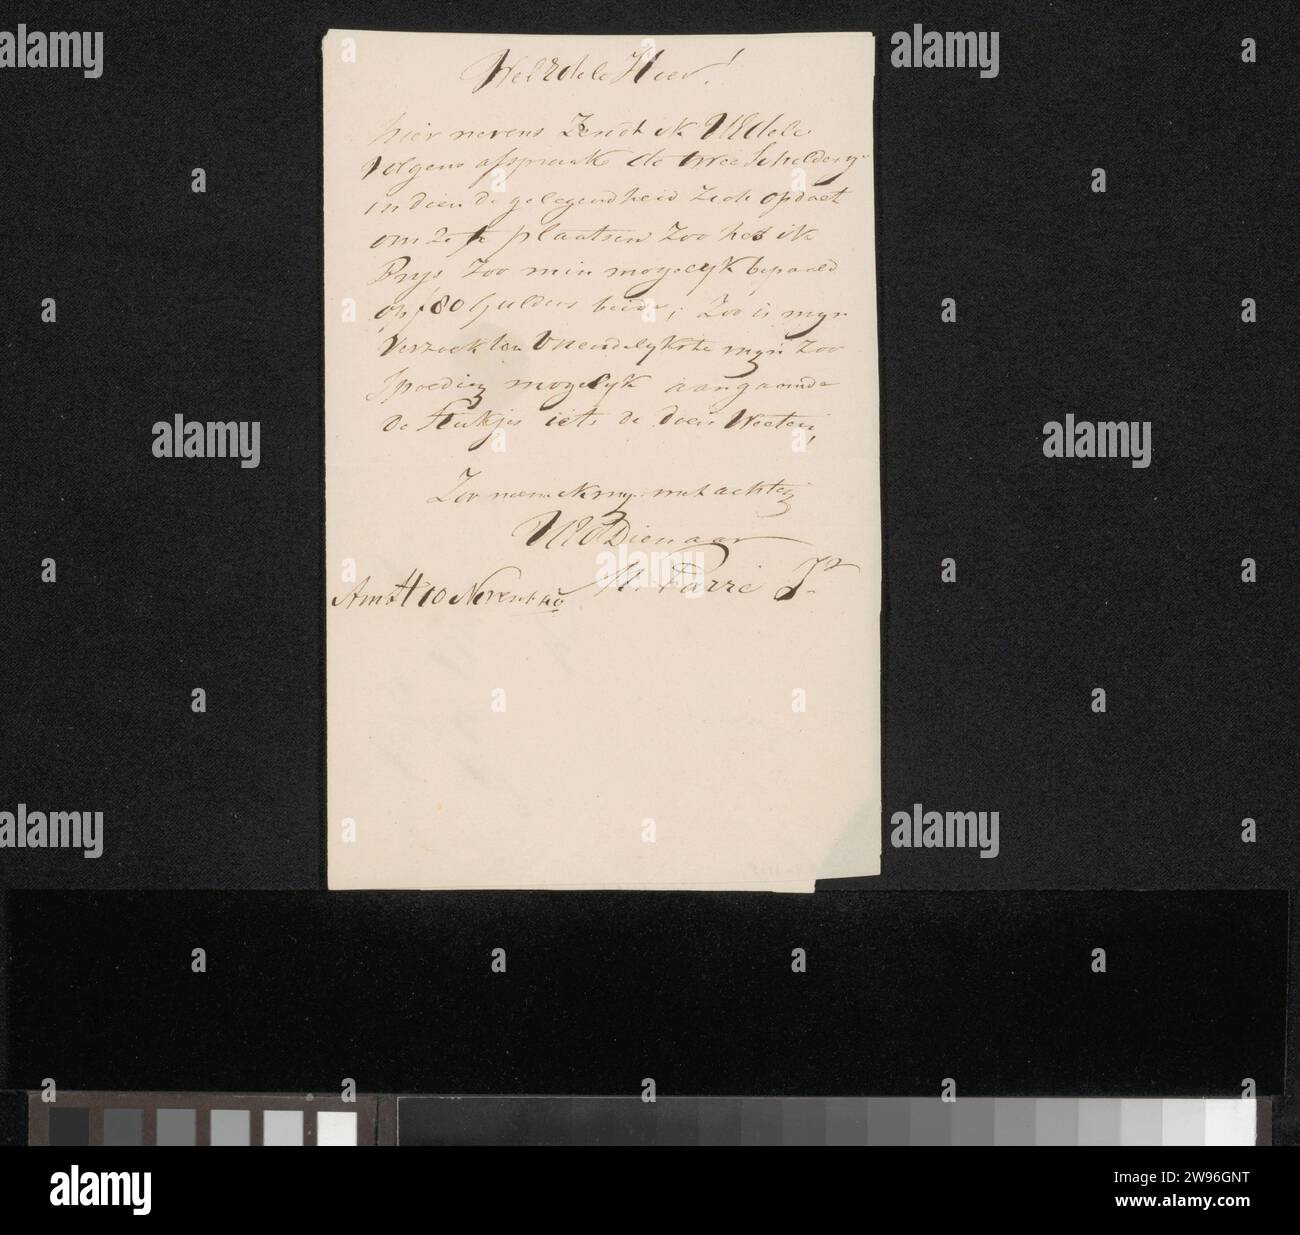 WelEdele Heer!
hier nevens Zend ik UEdele
Volgens afspraake de twee Schildery
indien de gelegendheid Zich opdoet
om Ze te plaatsen Zoo heb ik
Prys Zoo min mogelyk bepaald
op f80 Guldens beide; Zoo is myn
Verzoek ten Vriendelykste myn Zoo
Spoedig mogelyk aangaande
de Stukjes iets de doen Weeten,
Zoo noem ik my met achting
UEd Dienaar
Amst 10 Novemb 40 M. Parré Jr
alamy
Image ID: 2W96GNT
www.alamy.com